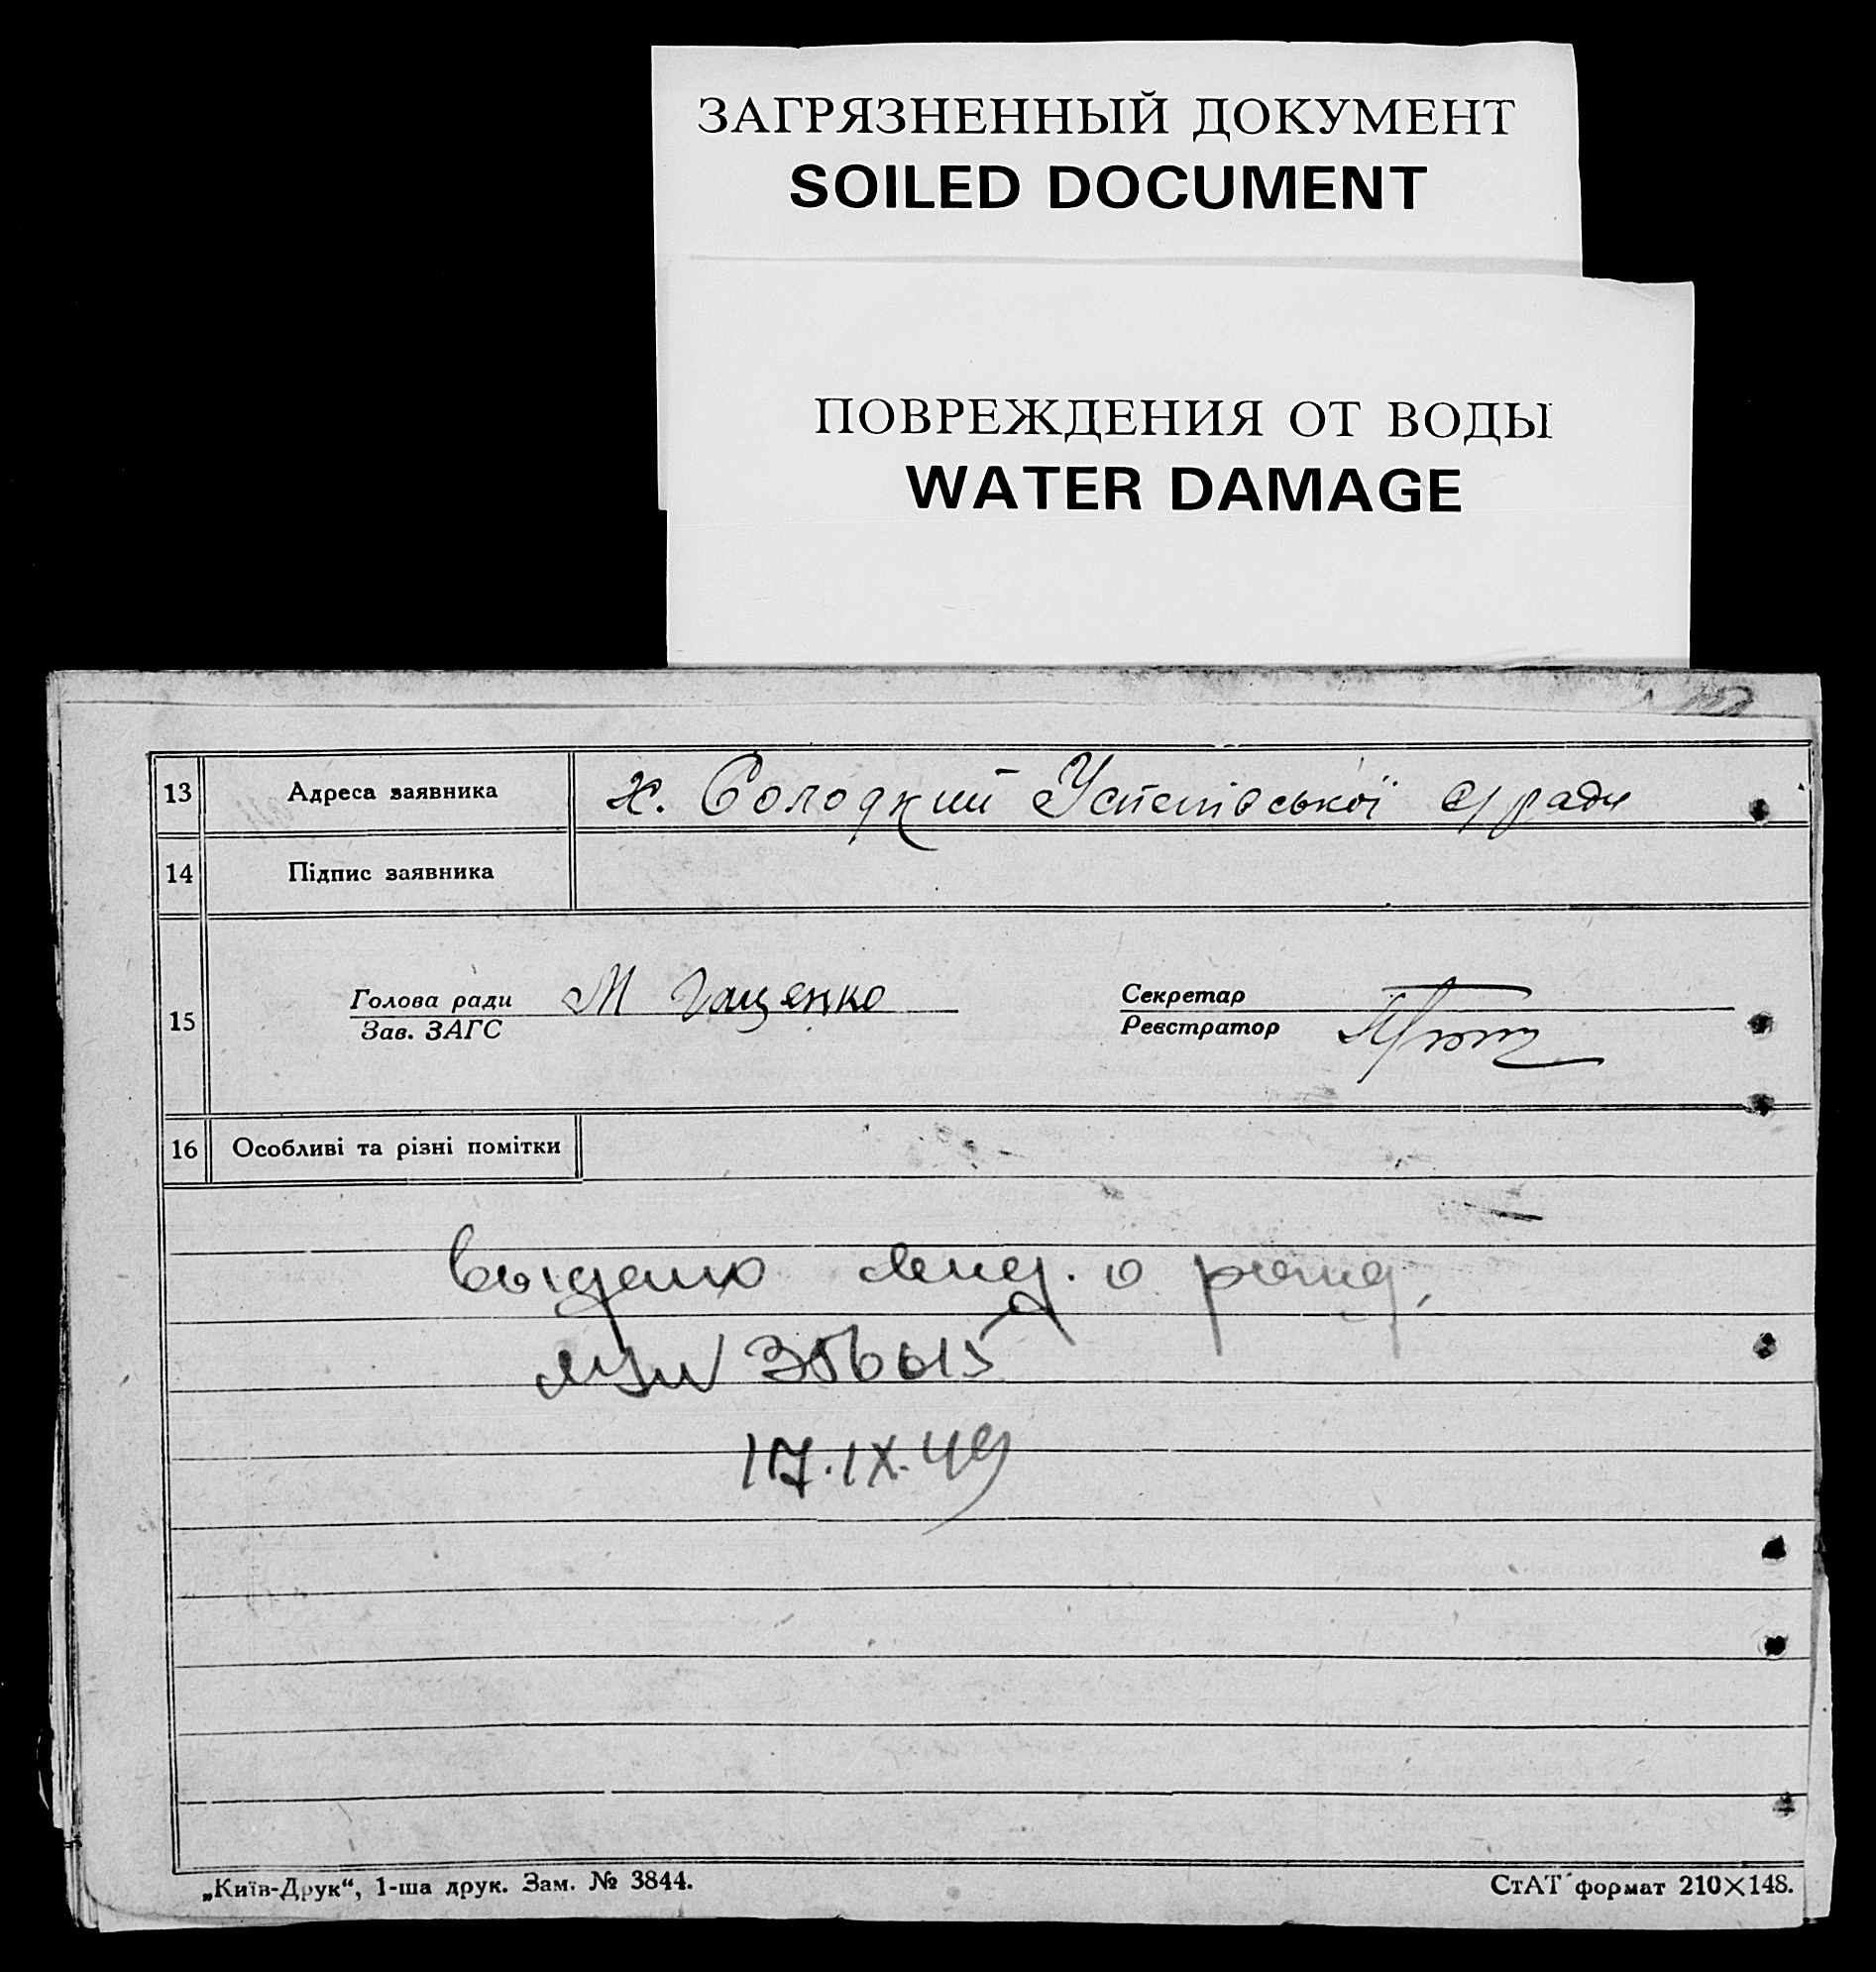 ЗАГРЯЗНЕННЫЙ ДОКУМЕНТ
SOILED DOCUMENT
ПОВРЕЖДЕНИЯ ОТ ВОДЫ
WATER DAMAGE
13 Адреса заявника х. Солодкий с/ради
14 Підпис заявника
15 Голова ради М Гащенко Секретар
Зав. ЗАГС Реєстратор
16 Особливі та різні помітки
выдано о рожд.
17.IX.49
„Київ-Друк“, 1-ша друк. Зам. № 3844. СтАТ формат 210×148.